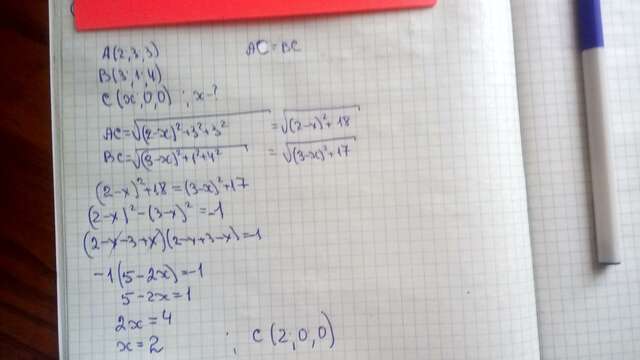 A(2;3;3) AC=BC
B(3;1;4)
C(x;0;0) ; x-?
AC=√(2-x)²+3²+3² = √(2-x)²+18
BC=√(3-x)²+1²+4² = √(3-x)²+17
(2-x)²+18=(3-x)²+17
(2-x)²-(3-x)²=-1
(2-x-3+x)(2-x+3-x)=-1
-1(5-2x)=-1
5-2x=1
2x=4
x=2 ; C(2;0;0)